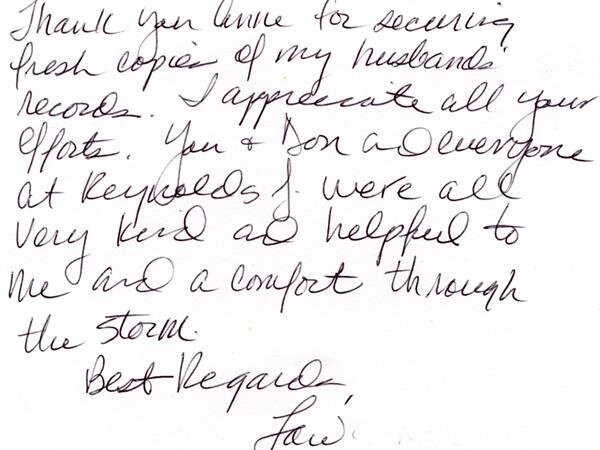 Thank you Anne for securing
fresh copies of my husbands
records. I appreciate all your
efforts. You & Don and everyone
at Reynolds J. were all
very kind and helpful to
me and a comfort through
the storm.
Best Regards,
Lori